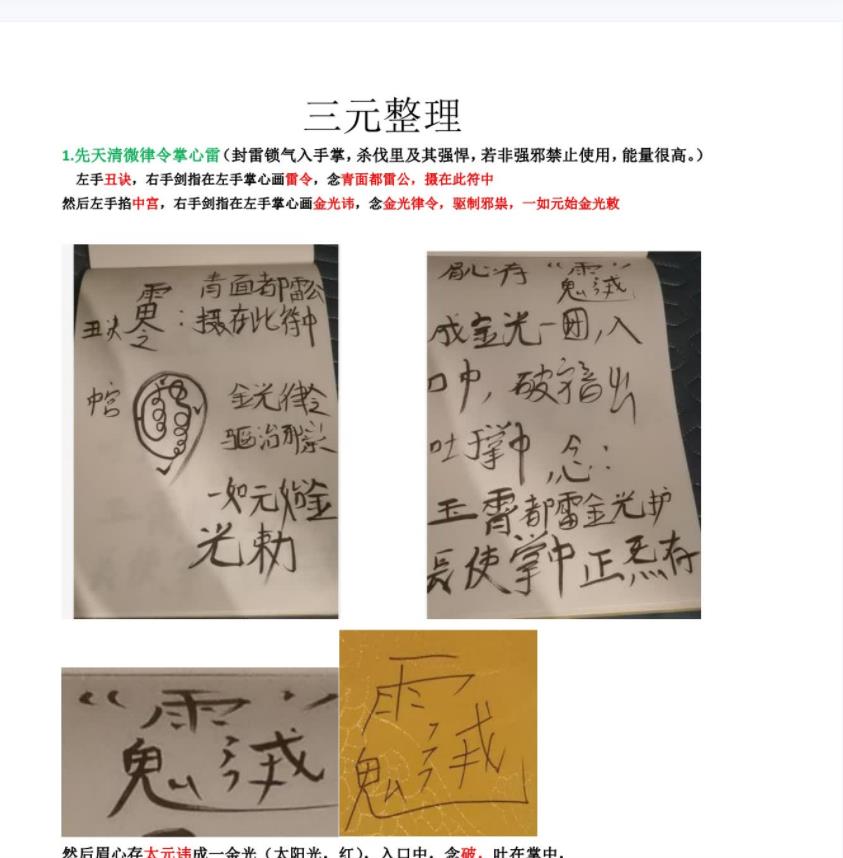 三元整理
1.先天清微律令掌心雷（封雷锁气入手掌，杀伐里及其强悍，若非强邪禁止使用，能量很高。）
左手丑诀，右手剑指在左手掌心画雷令，念青面都雷公，摄在此符中
然后左手掐中宫，右手剑指在左手掌心画金光讳，念金光律令，驱制邪祟，一如元始金光敕
雷令
青面都雷公
丑诀：摄在此符中
中宫
金光律令
驱治邪祟
一如元始金
光敕
眉心存“
”
成金光一团，入
口中，破
出
吐于掌中，念：
玉霄都雷金光护
長使掌中正炁存
然后眉心存太元讳成一金光（太阳光，红），入口中，念破，吐在掌中，